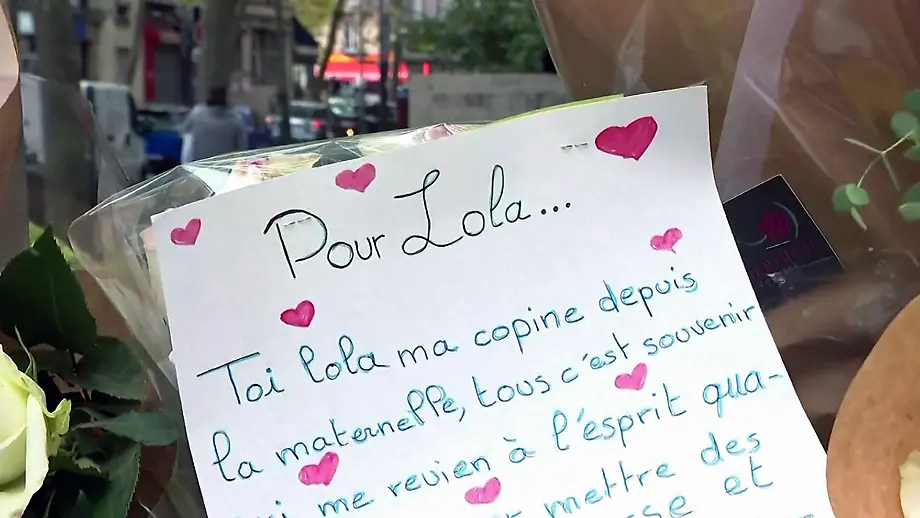 Pour Lola...
Toi lola ma copine depuis
la maternelle, tous c'est souvenir
me revien à l'esprit qua-
mettre des
et